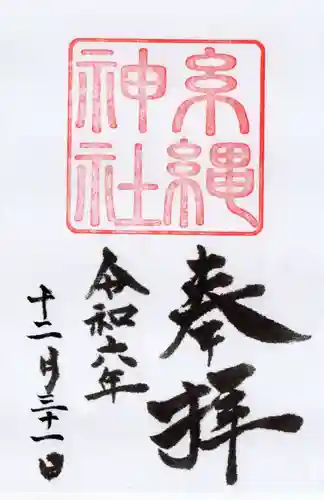 糸縄
神社
奉拝
令和六年
十二月三十一日